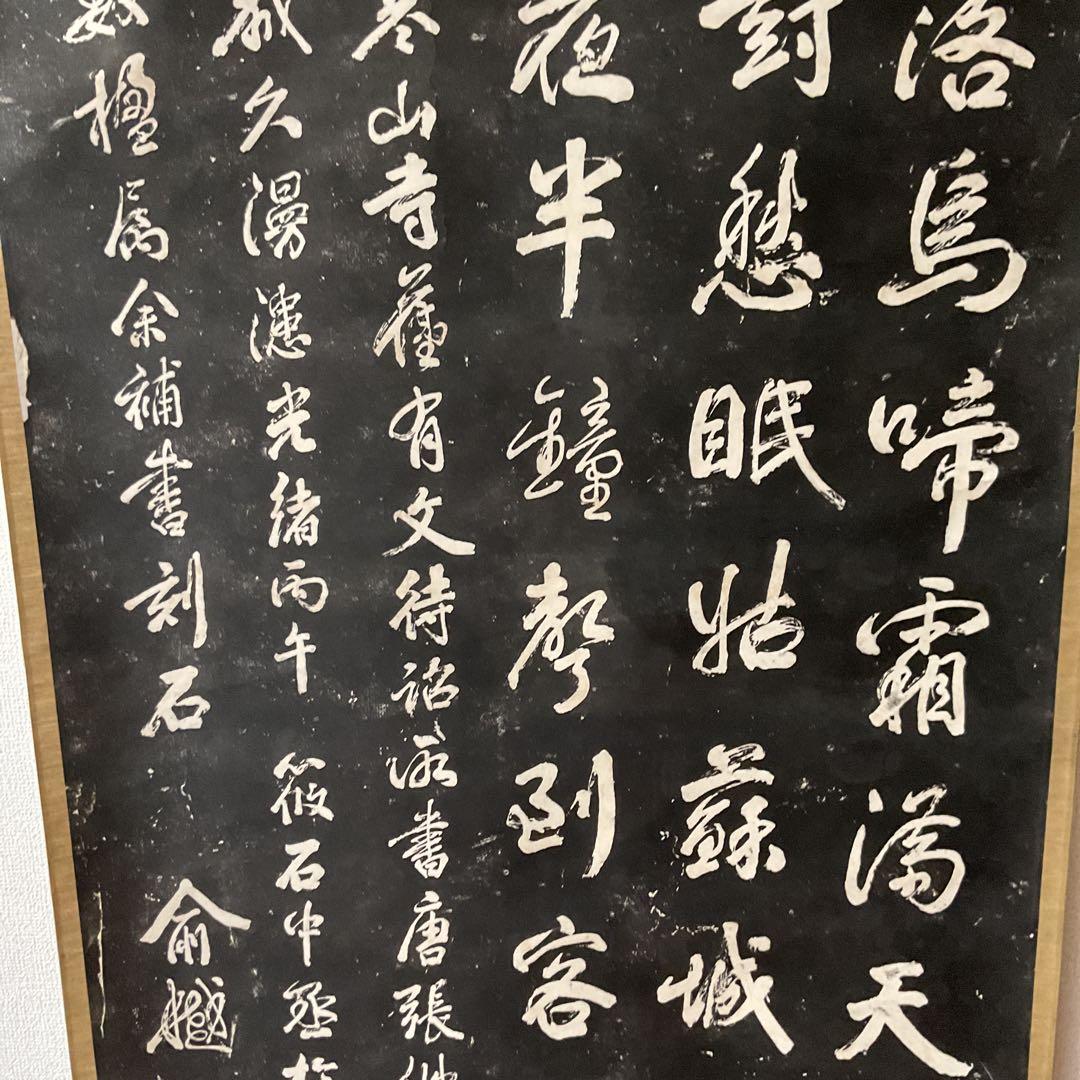 落烏啼霜滿天
對愁眠姑蘇城
夜半鐘聲到客
寒山寺舊有文待詔所書唐張繼
歲久漫漶光緒丙午 筱石中丞於
數楹屬余補書刻石 俞樾